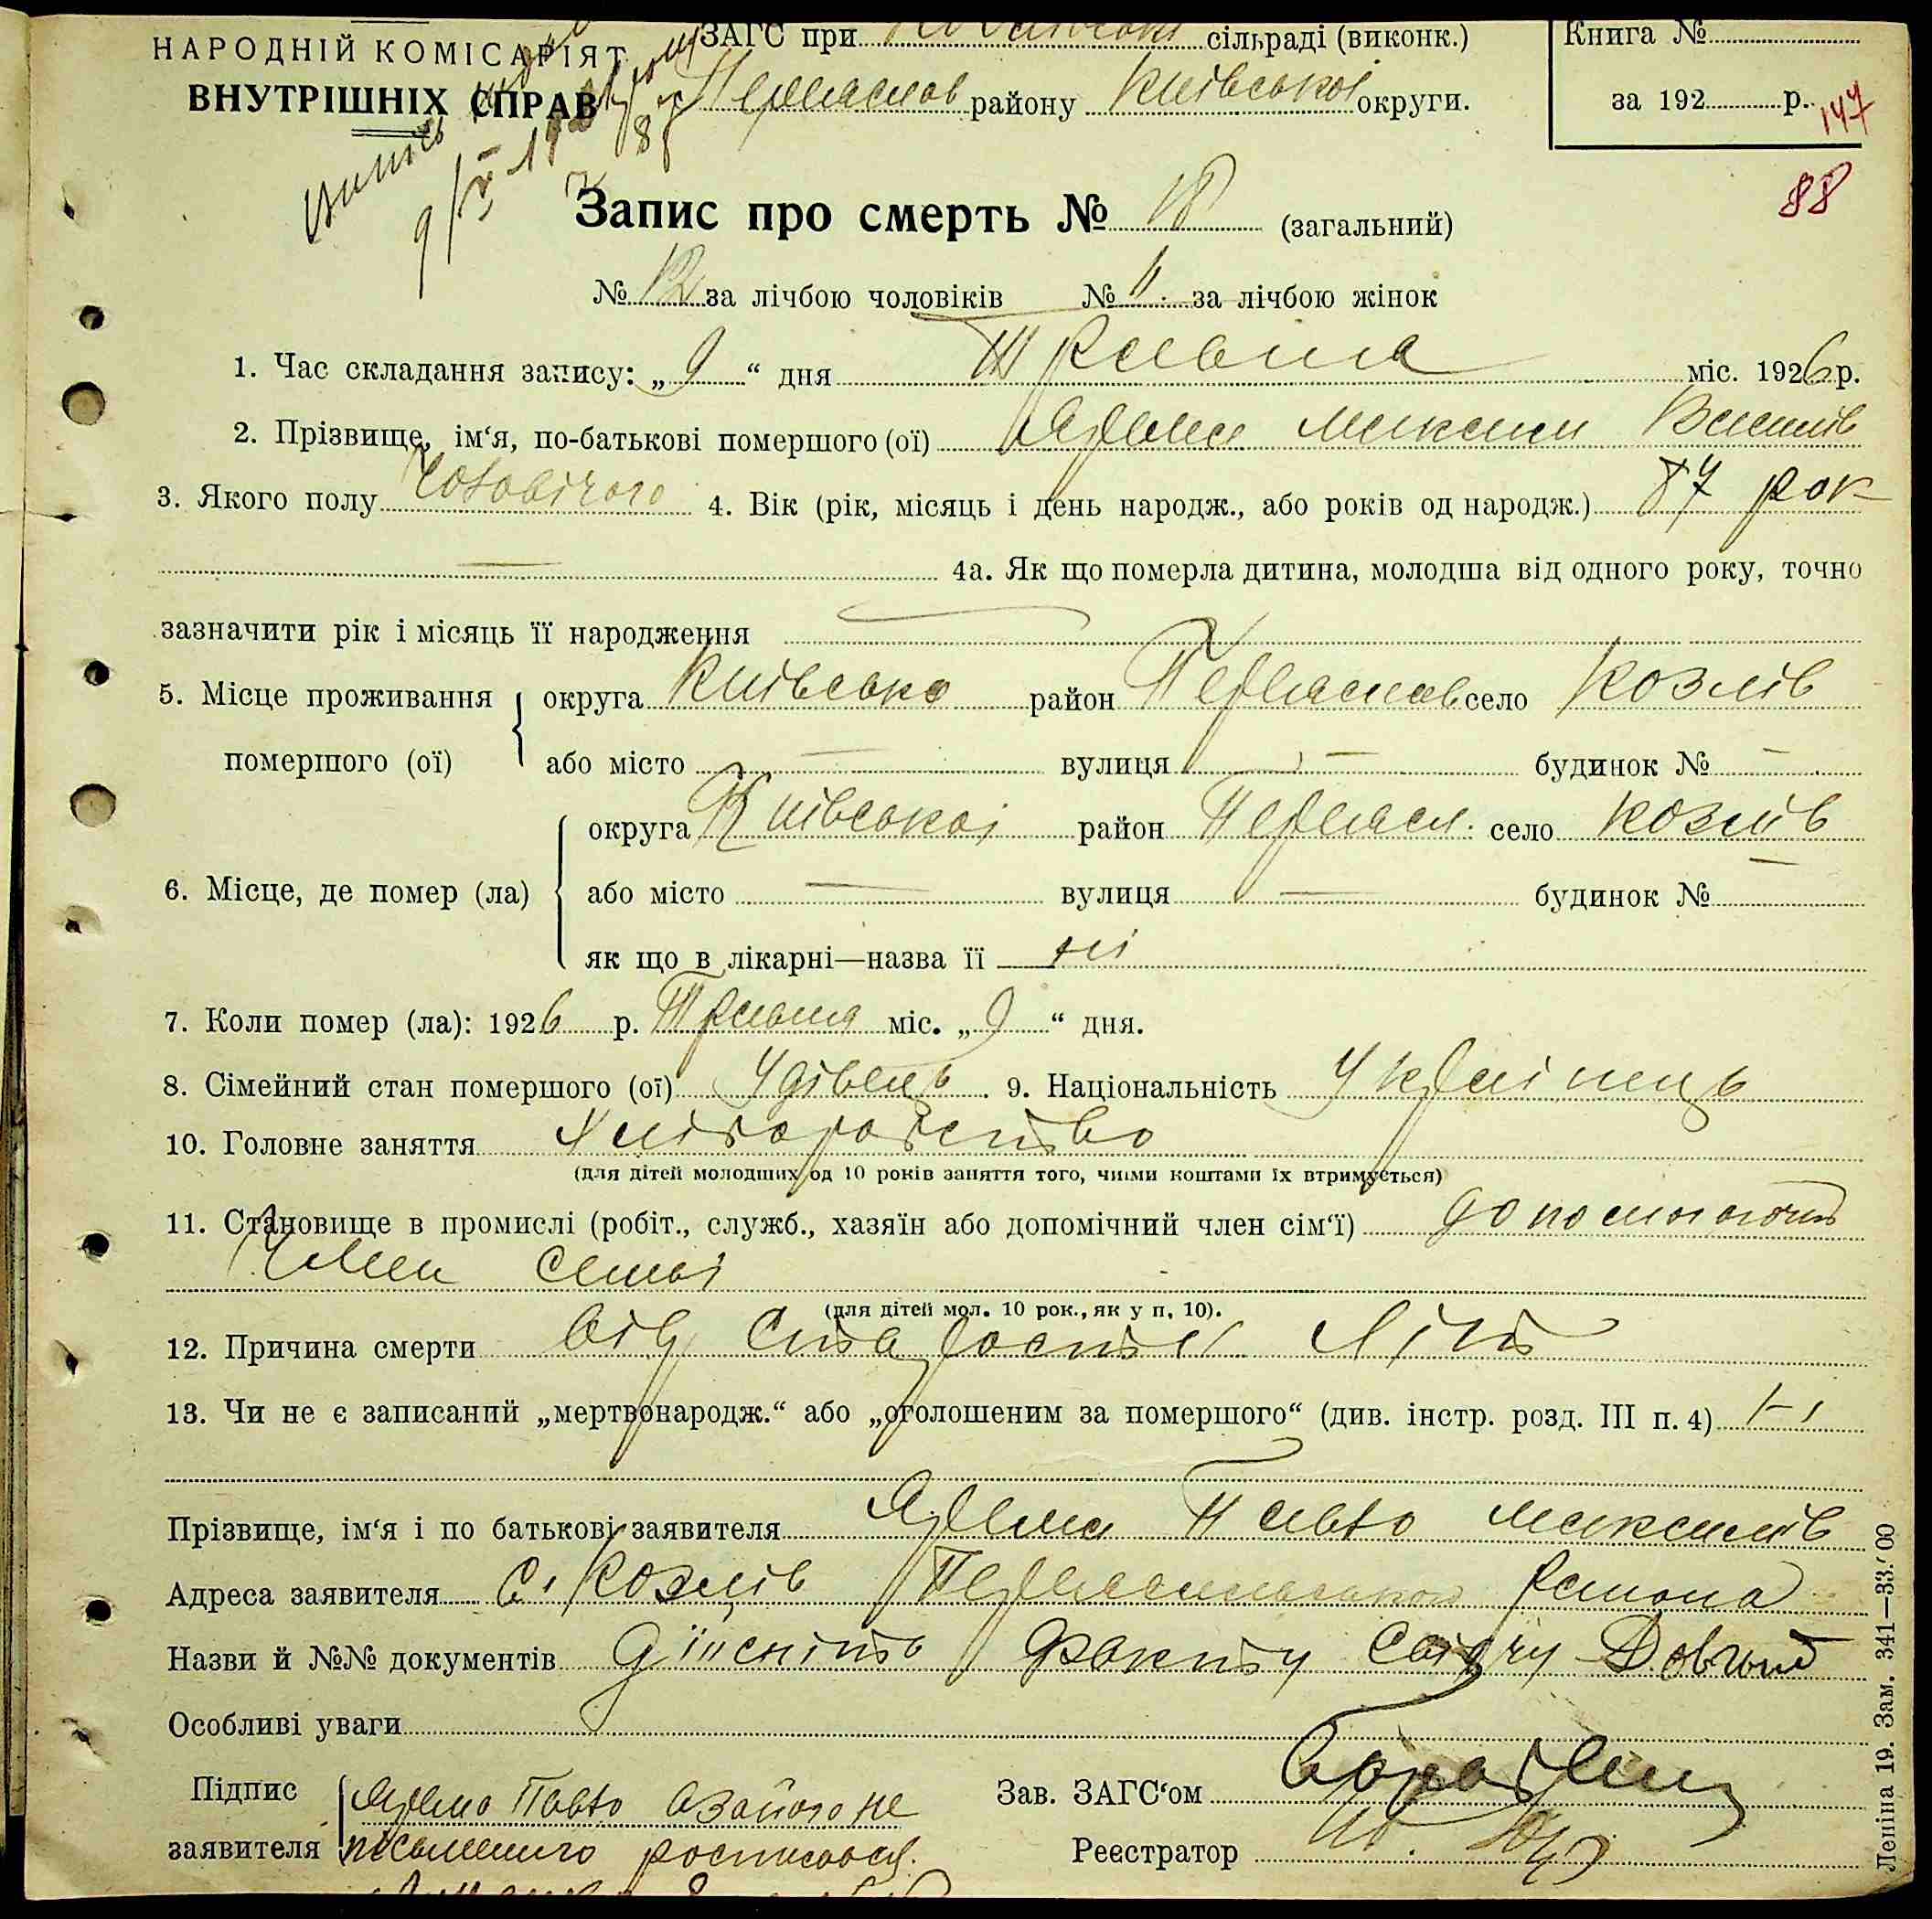 НАРОДНІЙ КОМІСАРІЯТ
ВНУТРІШНІХ СПРАВ
ЗАГС при Козлівські сільраді (виконк.)
Переяслов району Київської округи.
Книга №
за 192 р.
147
88
Запис про смерть № 18 (загальний)
№ 12 за лічбою чоловіків № 11. за лічбою жінок
1. Час складання запису: „ 9 “ дня Травня міс. 1926 р.
2. Прізвище, ім‘я, по-батькові помершого (ої) Ярема Максим
3. Якого полу Чоловічого 4. Вік (рік, місяць і день народж., або років од народж.) 87 рок
4а. Як що померла дитина, молодша від одного року, точно
зазначити рік і місяць її народження
5. Місце проживання помершого (ої) округа Київсько район Переяслав село Козлів
або місто — вулиця — будинок № —
6. Місце, де помер (ла) округа Київської район Переясл. село Козлів
або місто — вулиця — будинок № —
як що в лікарні—назва її ні
7. Коли помер (ла): 1926 р. Травня міс. „ 9 “ дня.
8. Сімейний стан помершого (ої) Удівець. 9. Національність Українець
10. Головне заняття Хліборобство
(для дітей молодших од 10 років заняття того, чиїми коштами їх втримується)
11. Становище в промислі (робіт., служб., хазяїн або допомічний член сім‘ї)
Член семьі
(для дітей мол. 10 рок., як у п. 10).
12. Причина смерти від старости літ
13. Чи не є записаний „мертвонародж.“ або „оголошеним за помершого“ (див. інстр. розд. III п. 4) ні
Прізвище, ім‘я і по батькові заявителя Ярема Павло Максимів
Адреса заявителя с. Козлів Переяславського району
Назви й №№ документів дійсність факту свідчу
Особливі уваги
Підпис заявителя Ярема Павло а за його не
письменного росписався
Зав. ЗАГС‘ом
Реєстратор
Леніна 19. Зам. 341—33.000